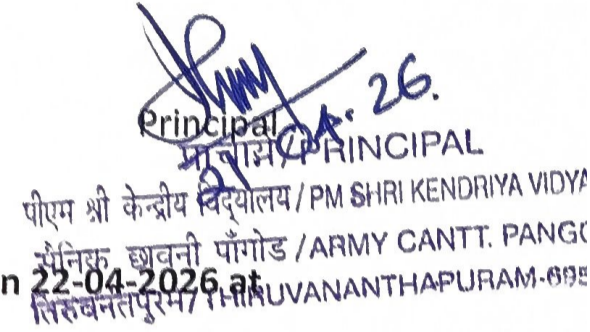 21/04.26.
Principal
प्राचार्य/PRINCIPAL
पीएम श्री केन्द्रीय विद्यालय/PM SHRI KENDRIYA VIDYA
सैनिक छावनी पाँगोड/ARMY CANTT. PANGO
n 22-04-2026 at
तिरुवनंतपुरम/THIRUVANANTHAPURAM-695